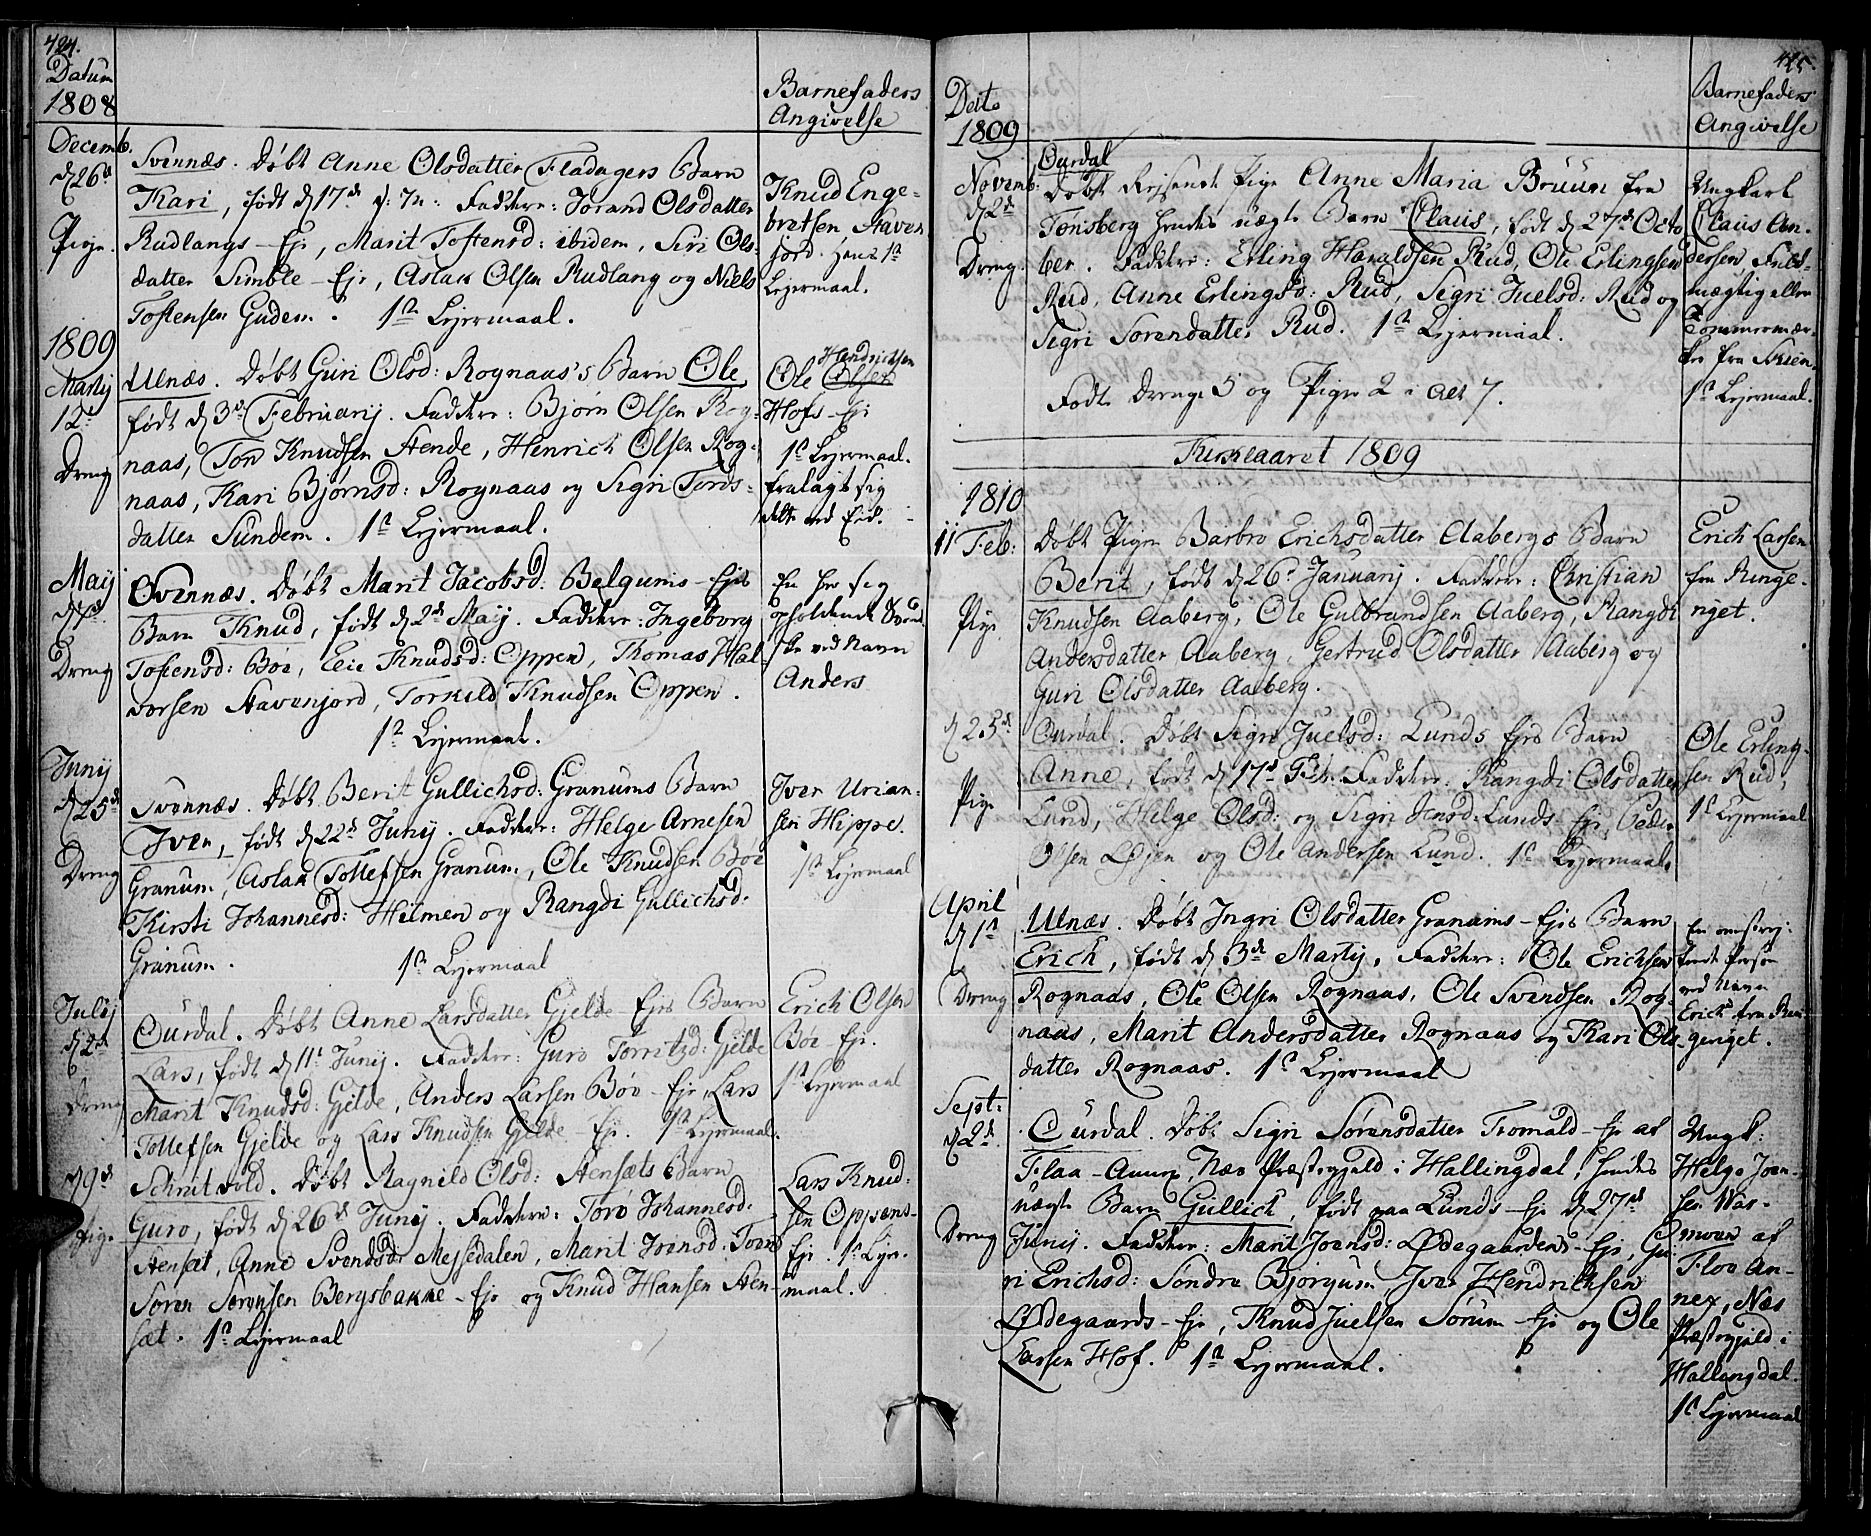 424.
Datum
1808
Barnefaders
Angivelse
Decemb.
d 26d
Pige.
Svennæs. Døbt Anne Olsdatter Fladagers Barn
Kari, født d 17d Faddere: Jorand Olsdatter
Rudlangs-Eje, Marit Tostensd: ibidem, Siri Ols-
datter Simble-Eje, Aslak Olsen Rudlang og Niels
Tostensen Gudem. 1ste Lejermaal.
Knud Enge-
bretsen Haven
jord. Hans 1ste
Lejermaal.
1809
Martij
12t
Dreng
Ulnæs. Døbt Guri Olsd: Rognaas's Barn Ole,
født d 3d Februarij. Faddere: Bjørn Olsen Rog-
naas, Tord Knudsen Hende, Henrich Olsen Rog-
naas, Kari Bjørnsd: Rognaas og Sigri Tords-
datter Sundem. 1ste Lejermaal.
Hendrichsen
Ole Olsen
Hofs-Eje
1ste Lejermaal.
fralagde sig
dette ved Eed.
Maij
d 7d
Dreng
Svennæs. Døbt Marit Jacobsd: Belgums-Ejes
Barn Knud, født d 2d Maij. Faddere: Ingeborg
Tostensd: Böe, Eeie Knudsd: Oppen, Thomas Hal-
vorsen Havenjord, Torkild Knudsen Oppen.
1ste Lejermaal.
En her sig
opholdende Svend-
ske ved Navn
Anders
Junij
d 25d
Dreng
Svennæs. Døbt Berit Gullichsd: Granums Barn
Iver, født d 22d Junij. Faddere: Helge Arnesen
Granum, Aslak Tollefsen Granum, Ole Knudsen Böe
Kirsti Johannesd: Hilmen og Rangdi Gullichsd:
Granum. 1ste Lejermaal
Iver Urian-
sen Hippe.
1ste Lejermaal
Julij
d 2d
Dreng
Ourdal. Døbt Anne Larsdatter Gjelde-Ejes Barn
Lars, født d 11t Junij. Faddere: Guro Torritzd: Gjelde
Marit Knudsd: Gjelde, Anders Larsen Böe-Eje, Lars
Tollefsen Gjelde og Lars Knudsen Gjelde-Eje. 1ste Lejermaal.
Erich Olsen
Böe-Eje.
1ste Lejermaal
d 9d
Pige
Schrutvold. Døbt Ragnild Olsd: Stensæts Barn
Guro, født d 26d Junij. Faddere: Torø Johannesd:
Stensæt, Anne Svendsdr Messedalen, Marit Joensd:
Søren Sørensen Bergsbakke-Eje og Knud Hansen Sten-
sæt. 1ste Lejermaal
Lars Knud-
sen Oppens-
Eje 1ste Lejer-
maal.
425.
Dato
1809
Barnefaders
Angivelse
Novemb:
d 2d
Dreng.
Ourdal
Døbt Rejsende Pige Anne Maria Bruun fra
Tønsberg hendes uægte Barn Claus, født d 27d Octo
ber. Faddere: Erling Haraldsen Rud, Ole Erlingsen
Rud, Anne Erlingsd: Rud, Sigri Juelsd: Rud og
Sigri Sørensdatter Rud. 1ste Lejermaal.
Fødte Drenge 5 og Piger 2 i alt 7.
Ungkarl
Claus An-
dersen Fuld-
mægtig eller
Tommermær-
ker fra Skien.
1ste Lejermaal.
Kirkeaaret 1809
1810
11 Feb:
Pige
Døbt Pigen Barbro Erichsdatter Aabergs Barn
Berit, født d 26d Januarij. Faddere: Christian
Knudsen Aaberg, Ole Gulbrandsen Aaberg, Rangdi
Andersdatter Aaberg, Gertrud Olsdatter Aaberg og
Guri Olsdatter Aaberg.
Erich Larsen
fra Ringe-
riget.
d 25d
Pige
Ourdal. Døbt Sigri Juelsd: Lunds Ejes Barn
Anne, født d 17d Feb: Faddere: Rangdi Olsdatter
Lund, Helge Olsd: og Sigri Jensd: Lunds-Eje, Peder
Olsen Løjen og Ole Andersen Lund. 1ste Lejermaal.
Ole Erling-
sen Rud,
1ste Lejermaal
April
d 1st
Dreng
Ulnæs. Døbt Ingri Olsdatter Granums-Ejes Barn
Erich, født d 3d Martij. Faddere: Ole Erichsen
Rognaas, Ole Olsen Rognaas, Ole Svendsen Rog-
naas, Marit Andersdatter Rognaas og Kari Ols-
datter Rognaas. 1ste Lejermaal
En omstrej-
fende Person
ved Navn
Erich fra
geriget.
Sept:
d 2d
Dreng
Ourdal. Døbt Sigri Sørensdatter Tromald-Eje af
Flaa-Annex, Næs Præstegjeld i Hallingdal, hendes
uægte Barn Gullich, født paa Lunds-Eje d 27d
Junij. Faddere: Marit Joensd: Ødegaardens-Eje, Gu-
ri Erichsd: Søndre Bjørgum, Iver Hendrichsen
Ødegaards-Eje, Knud Juelsen Sørum-Eje og Ole
Larsen Hof. 1ste Lejermaal.
Ungk:
Helge Joen-
sen
af
Flaa An-
nex, Næs
Præstegjeld i
Hallingdal.
1ste Lejermaal